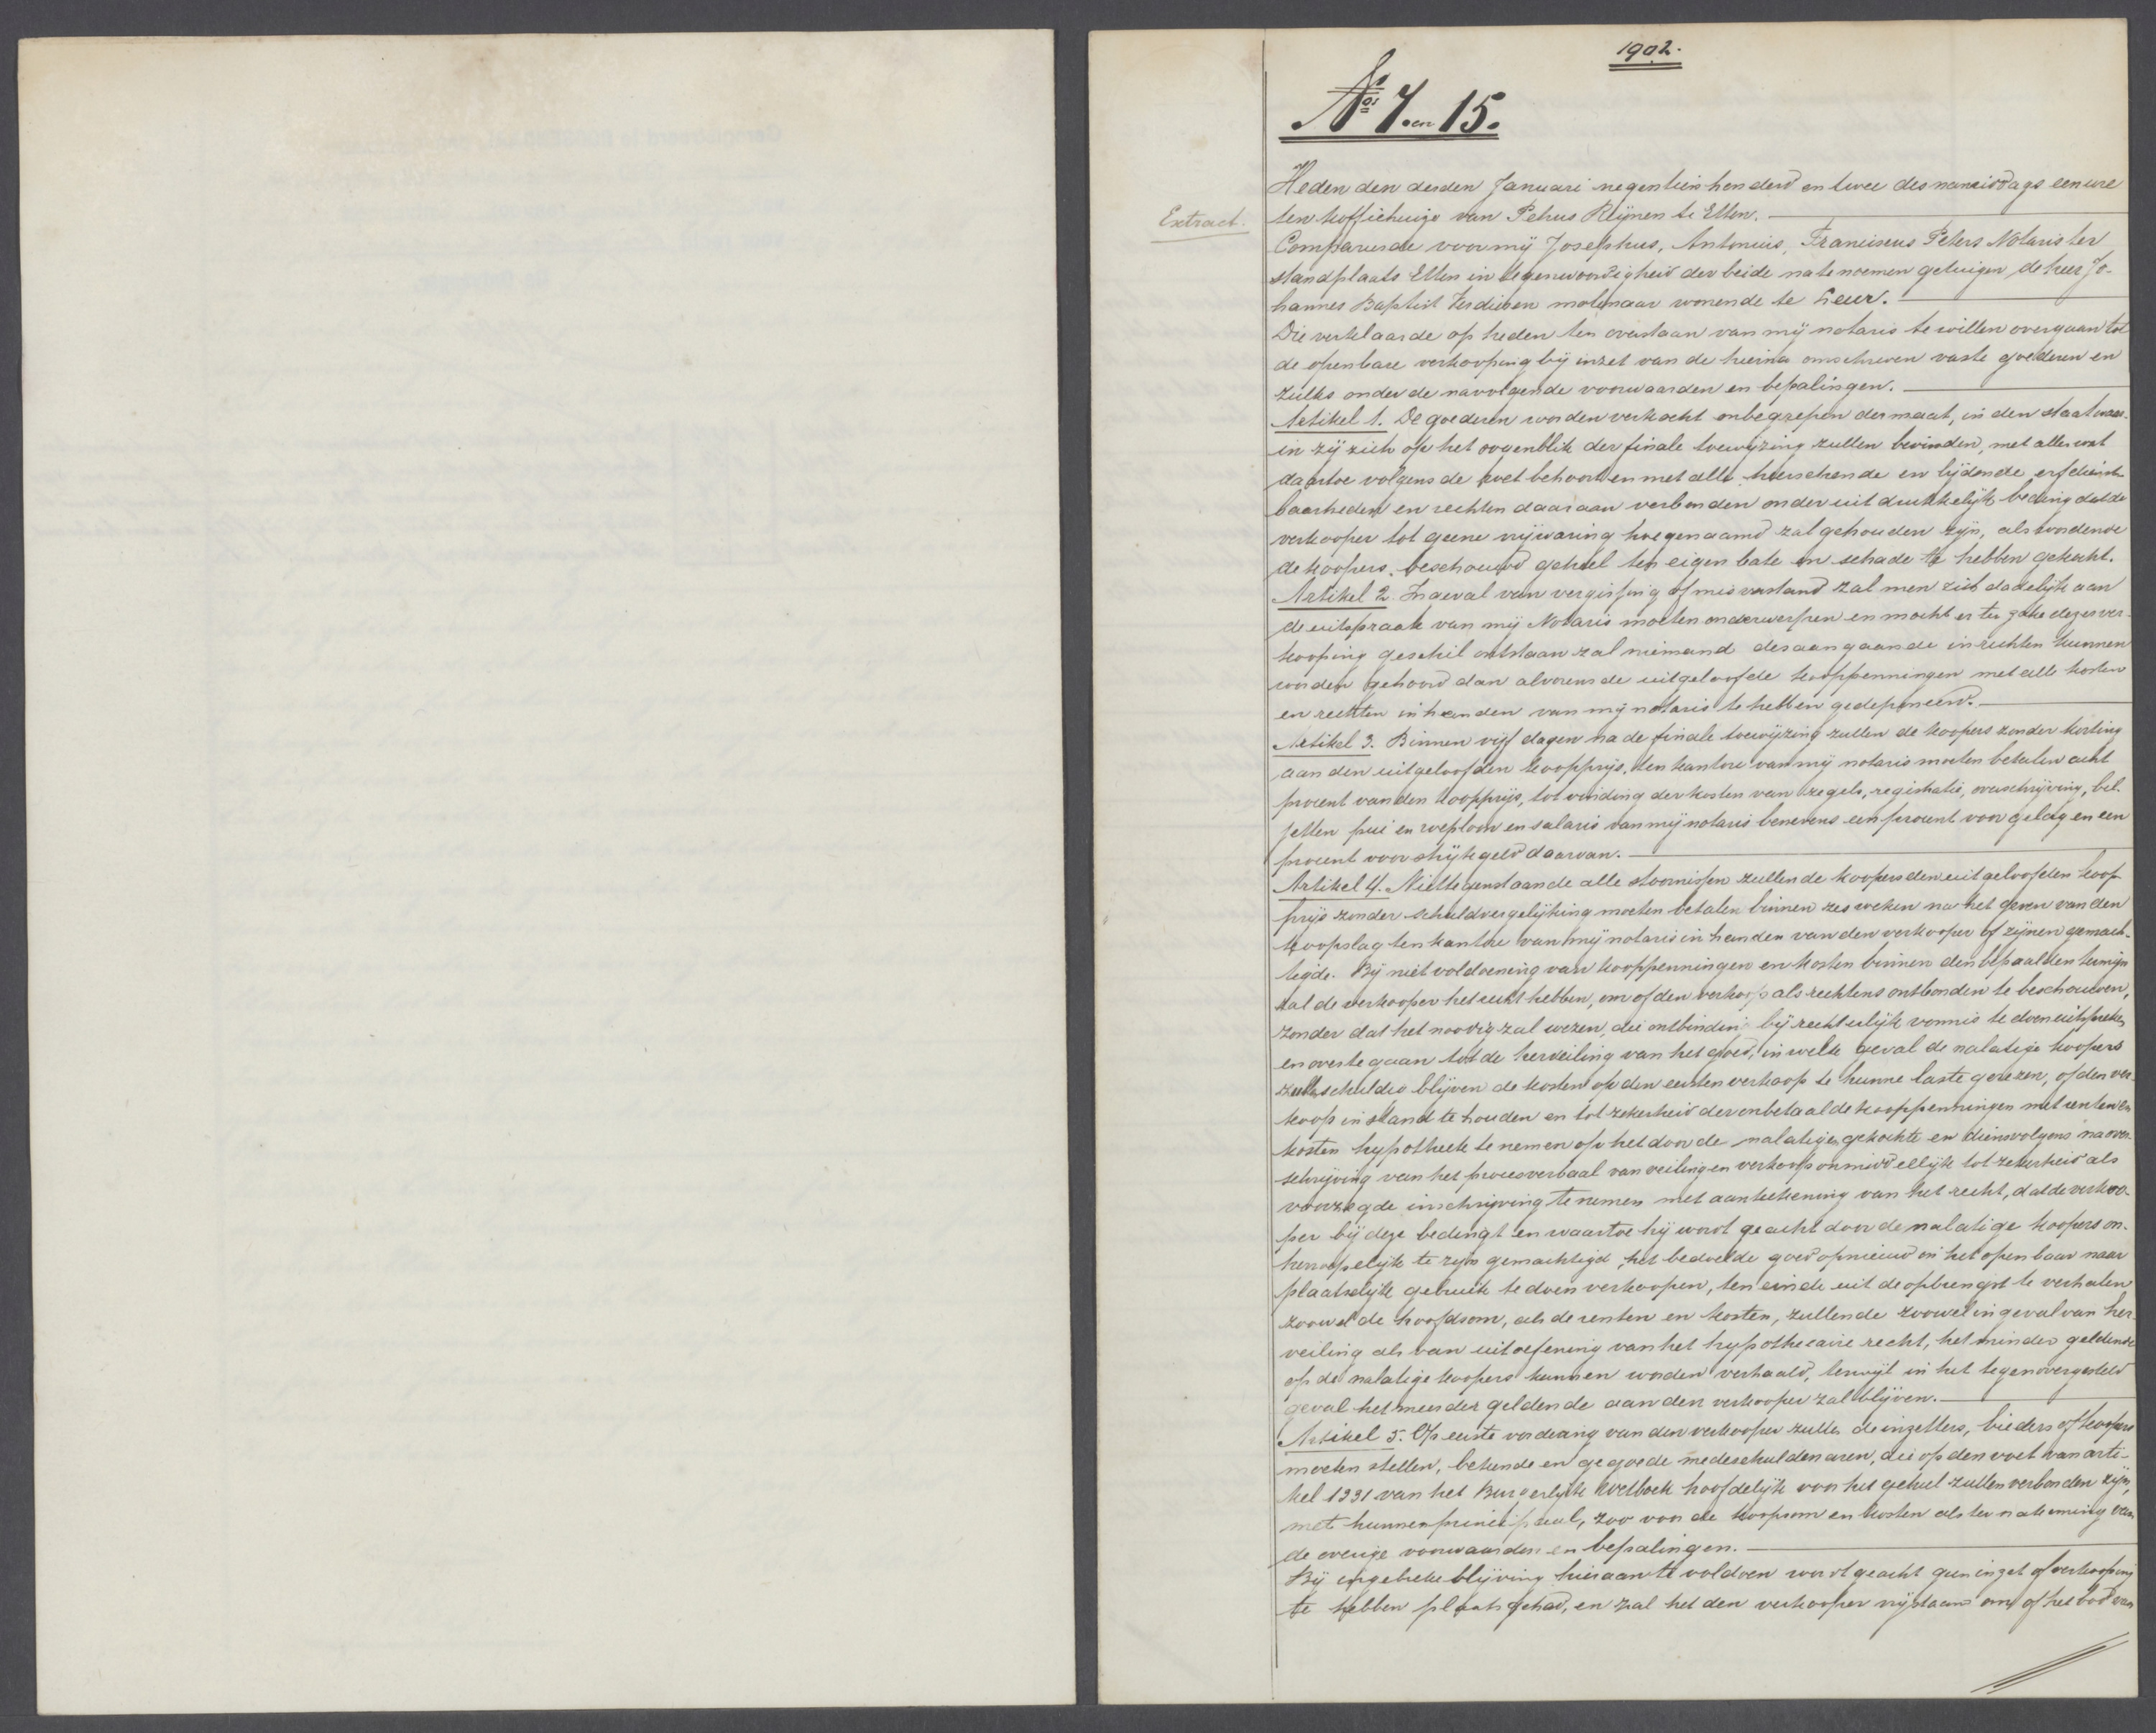 1902.
Nos 7 en 15.
Extract.
Heden den derden Januari negentienhonderd en twee des namiddags een ure
ten koffiehuize van Petrus Reijnen te Etten.
Compareerde voor mij Josephus, Antonius, Franciscus Peters Notaris ter
standplaats Etten in tegenwoordigheid der beide nate noemen getuigen, de heer Jo-
hannes Baptist Verdiesen molenaar wonende te Leur.
Die verklaarde op heden ten overstaan van mij notaris te willen overgaan tot
de openbare verkooping bij inzet van de hierna omschreven vaste goederen en
zulks onder de navolgende voorwaarden en bepalingen.
Artikel 1. De goederen worden verkocht onbegrepen der maat, in den staat waar-
in zij zich op het oogenblik der finale toewijzing zullen bevinden, met alles wat
daartoe volgens de wet behoort en met alle heerschende en lijdende erfdienst-
baarheden en rechten daaraan verbonden onder uitdrukkelijk beding dat de
verkooper tot geene vrijwaring hoegenaamd zal gehouden zijn, als wordende
de koopers beschouwd geheel ten eigen bate en schade te hebben gekocht.
Artikel 2. Ingeval van vergissing of misverstand zal men zich dadelijk aan
de uitspraak van mij Notaris moeten onderwerpen en mocht er ter zake dezer ver-
kooping geschil ontstaan zal niemand desaangaande in rechten kunnen
worden gehoord dan alvorens de uitgeloofde kooppenningen met alle kosten
en rechten in handen van mij notaris te hebben gedeponeerd.
Artikel 3. Binnen vijf dagen na de finale toewijzing zullen de koopers zonder korting
aan den uitgeloofden koopprijs, ten kantore van mij notaris moeten betalen acht
procent van den koopprijs, tot vinding der kosten van zegels, registratie, overschrijving, bil-
jetten pui en roeploon en salaris van mij notaris benevens een procent voor gelag en een
procent voor strijkgeld daarvan.
Artikel 4. Niettegenstaande alle stoornissen zullen de koopers den uitgeloofden koop-
prijs zonder schuldvergelijking moeten betalen binnen zes weken na het geven van den
koopslag ten kantore van mij notaris in handen van den verkooper of zijnen gemach-
tigde. Bij niet voldoening van kooppenningen en kosten binnen den bepaalden termijn
zal de verkooper het recht hebben, om of den verkoop als rechtens ontbonden te beschouwen,
zonder dat het noodig zal wezen, die ontbinding bij rechterlijk vonnis te doen uitspreken
en over te gaan tot de herveiling van het goed, in welk geval de nalatige koopers
zullen schuldig blijven de kosten op den eersten verkoop te hunne laste gerezen, of den ver-
koop in stand te houden en tot zekerheid der onbetaalde kooppenningen met renten en
kosten hypotheek te nemen op het door de nalatigen gekochte en diensvolgens na over-
schrijving van het procesverbaal van veiling en verkoop onmiddellijk tot zekerheid als
voorzegde inschrijving te nemen met aanteekening van het recht, dat de verkoo-
per bij deze bedingt en waartoe hij wordt geacht door de nalatige koopers on-
herroepelijk te zijn gemachtigd, het bedoelde goed opnieuw in het openbaar naar
plaatselijk gebruik te doen verkoopen, ten einde uit de opbrengst te verhalen
zoowel de hoofdsom, als de renten en kosten, zullende zoowel in geval van her-
veiling als van uitoefening van het hypothecaire recht, het minder geldende
op de nalatige koopers kunnen worden verhaald, terwijl in het tegenovergesteld
geval het meerder geldende aan den verkooper zal blijven.
Artikel 5. Op eerste vordering van den verkooper zullen de inzetters, bieders of koopers
moeten stellen, bekende en gegoede medeschuldenaren, die op den voet van arti-
kel 1331 van het Burgerlijk Wetboek hoofdelijk voor het geheel zullen verbonden zijn,
met hunnen principaal, zoo voor de koopsom en kosten als ter nakoming van
de overige voorwaarden en bepalingen.
Bij ingebreke blijving hieraan te voldoen wordt geacht geen inzet of verkooping
te hebben plaats gehad, en zal het den verkooper vrijstaan om of het bod van